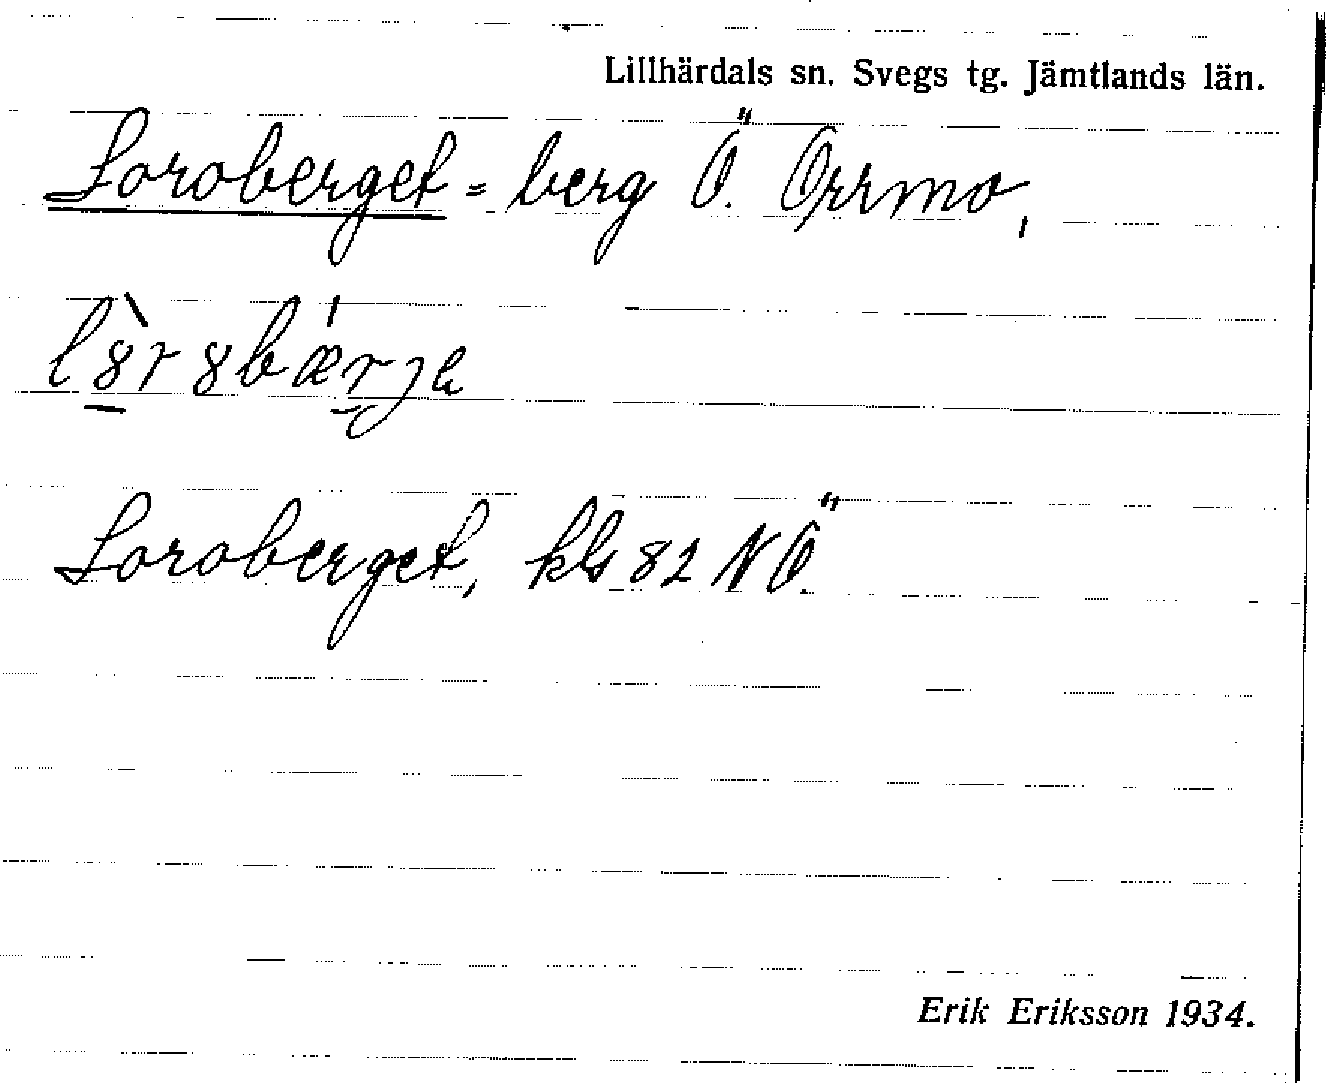 Lillhärdals sn. Svegs tg. Jämtlands län.
Loroberget = berg Ö. Orrmo,
lȣ̀rȣbǽrje
Loroberget, kbl 82 NÖ.
Erik Eriksson 1934.